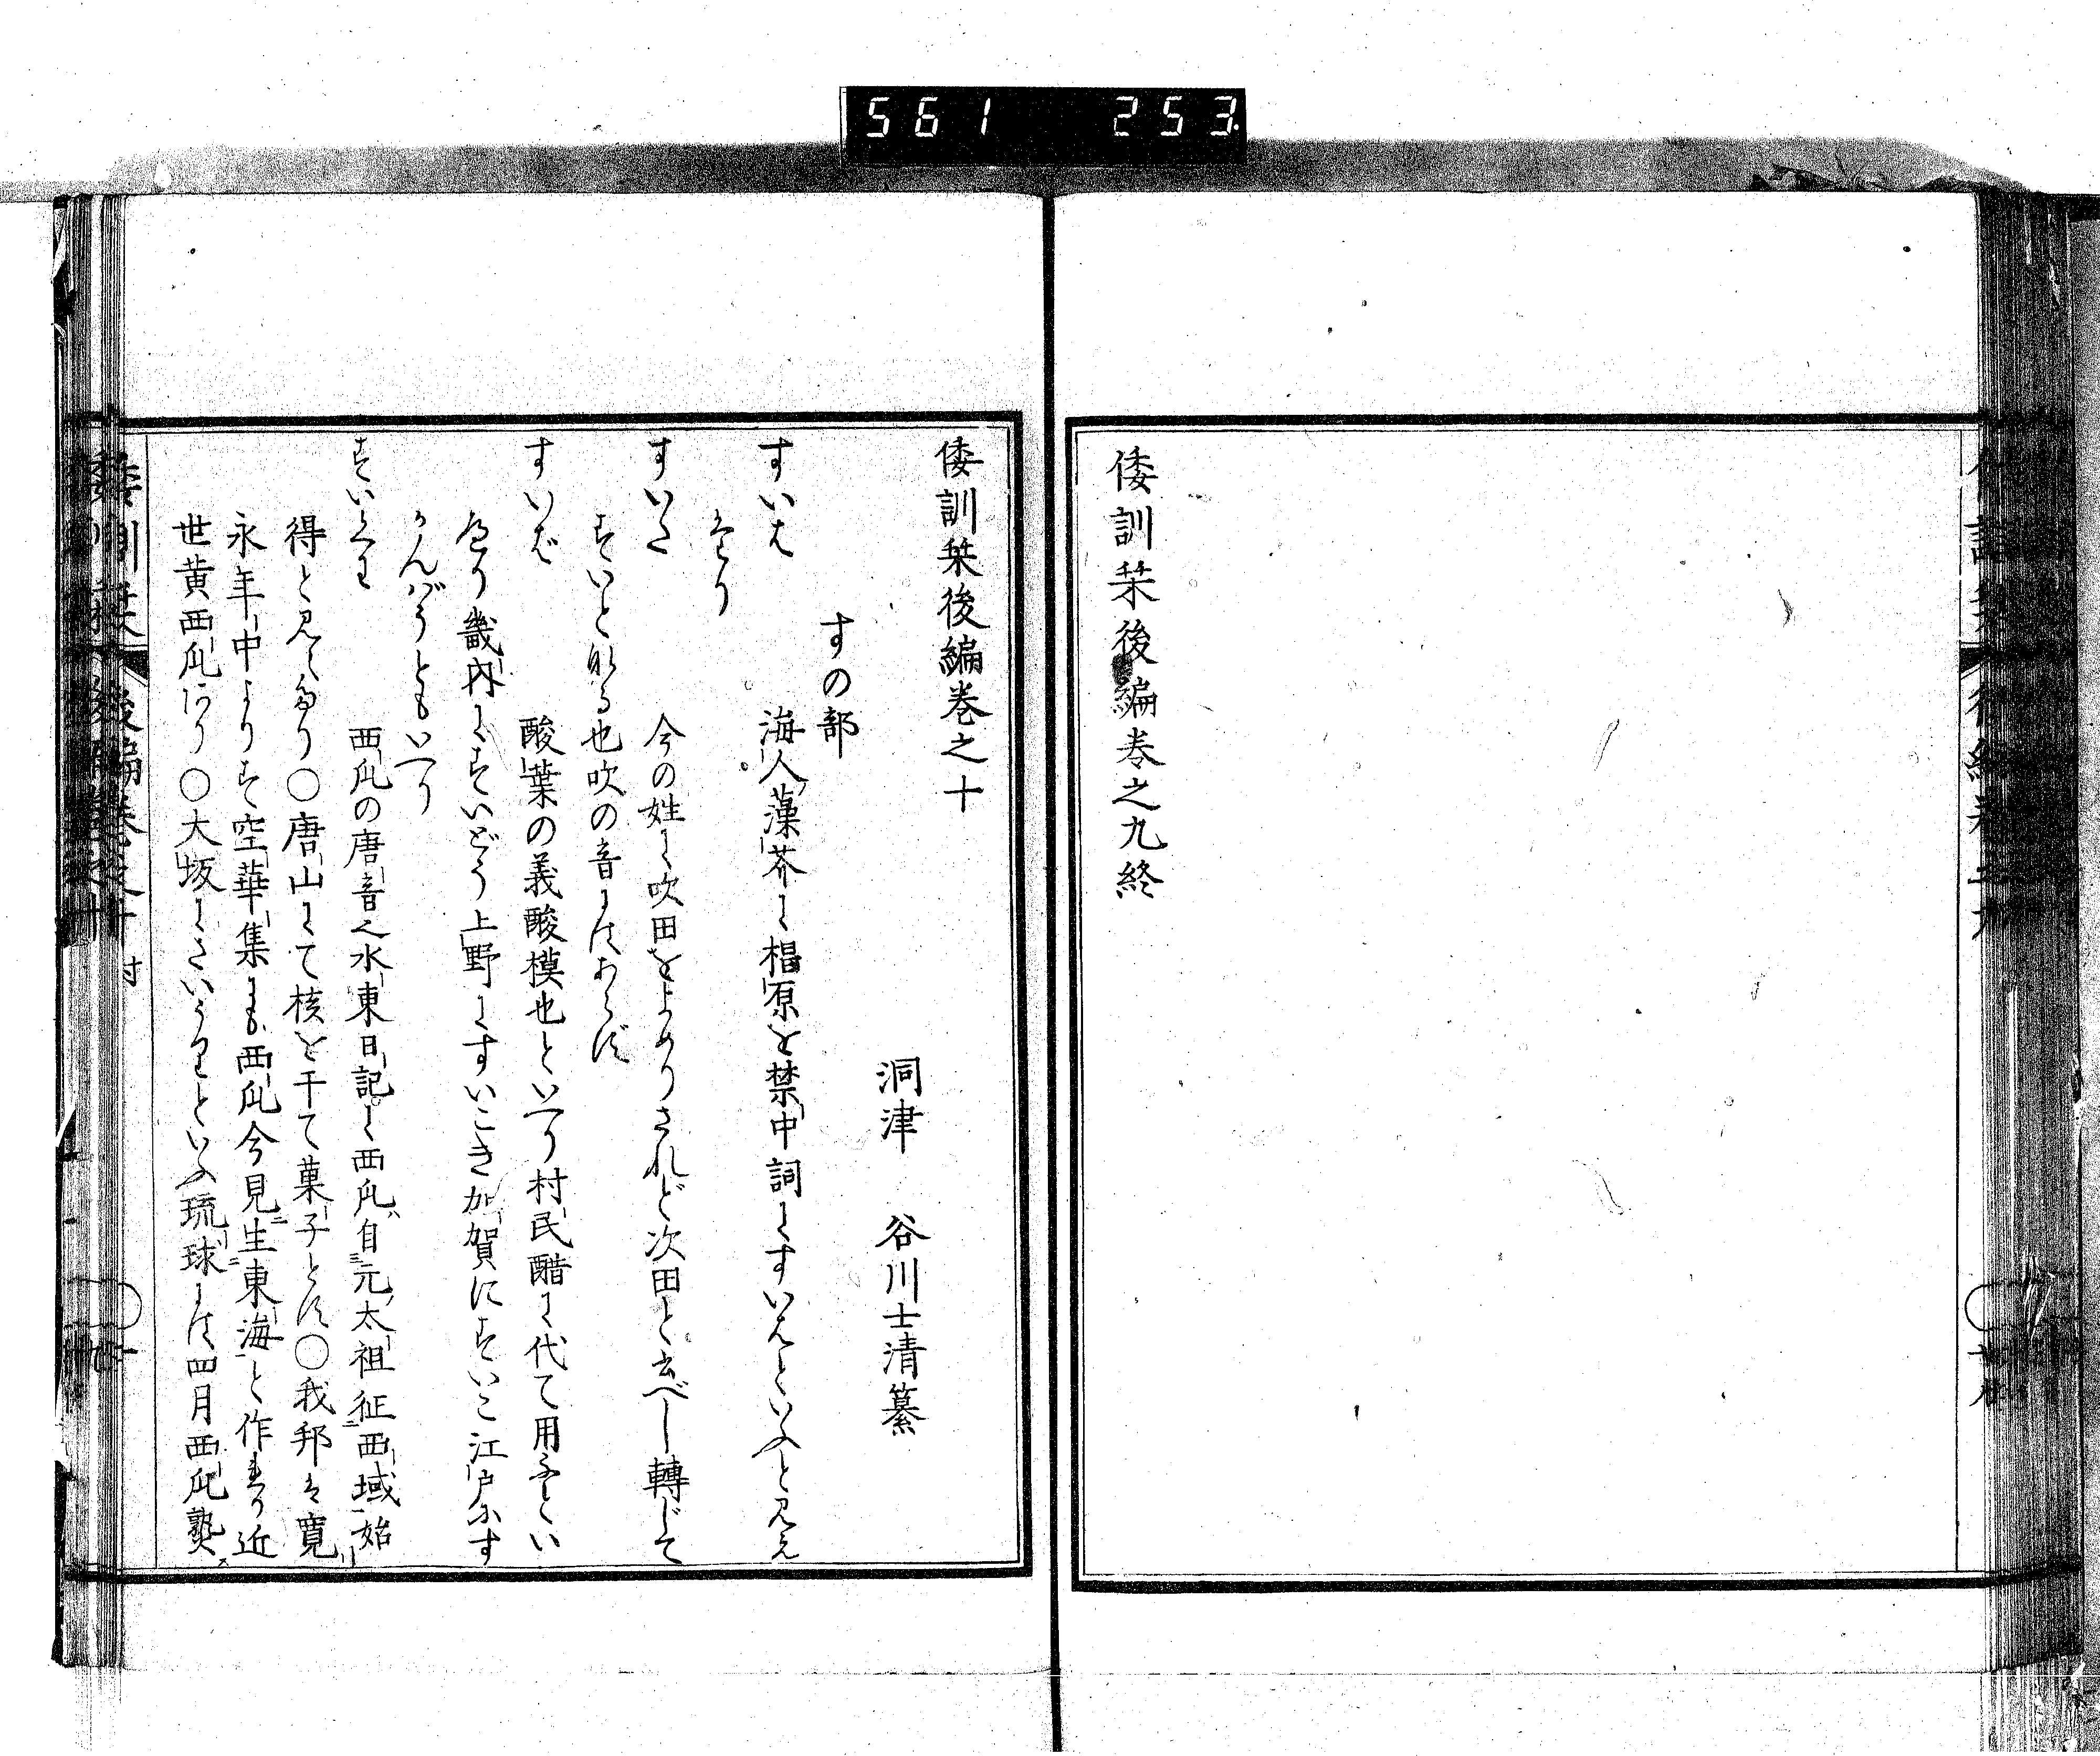 561 253
倭訓栞後編巻之九終
倭訓栞後編巻之十
洞津 谷川士清纂
すの部
すいは 海人藻芥に椙原を禁中詞にすいはといふと見え
たり
すいた 今の姓に吹田をよめりされど次田と書べし轉じて
すいとなる也吹の音にはあらず
すいば 酸葉の義酸模也といへり村民醋に代て用ふとい
へり畿内にすいどう上野にすいこき加賀にすいこ江戸にす
かんぼうともいへり
すいくわ 西瓜の唐音之水東日記に西瓜自元太祖征西域始
得と見えたり〇唐山にて核を干て菓子とす〇我邦は寛
永年中よりす空華集にも西瓜今見生東海と作れり近
世黄西瓜あり〇大坂にさいうりといふ琉球には四月西瓜熟